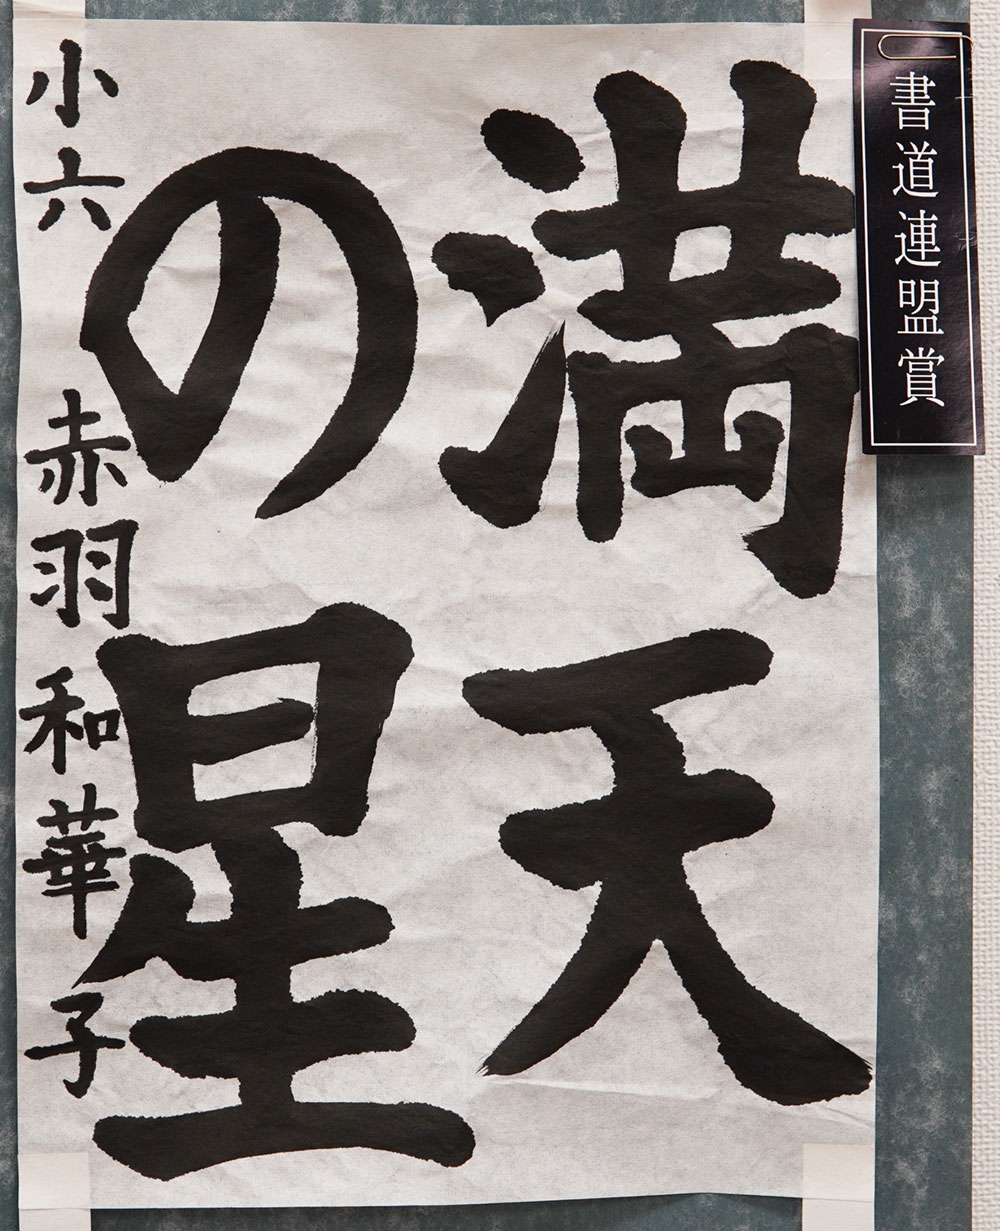 書道連盟賞
満天
の星
小六 赤羽和華子